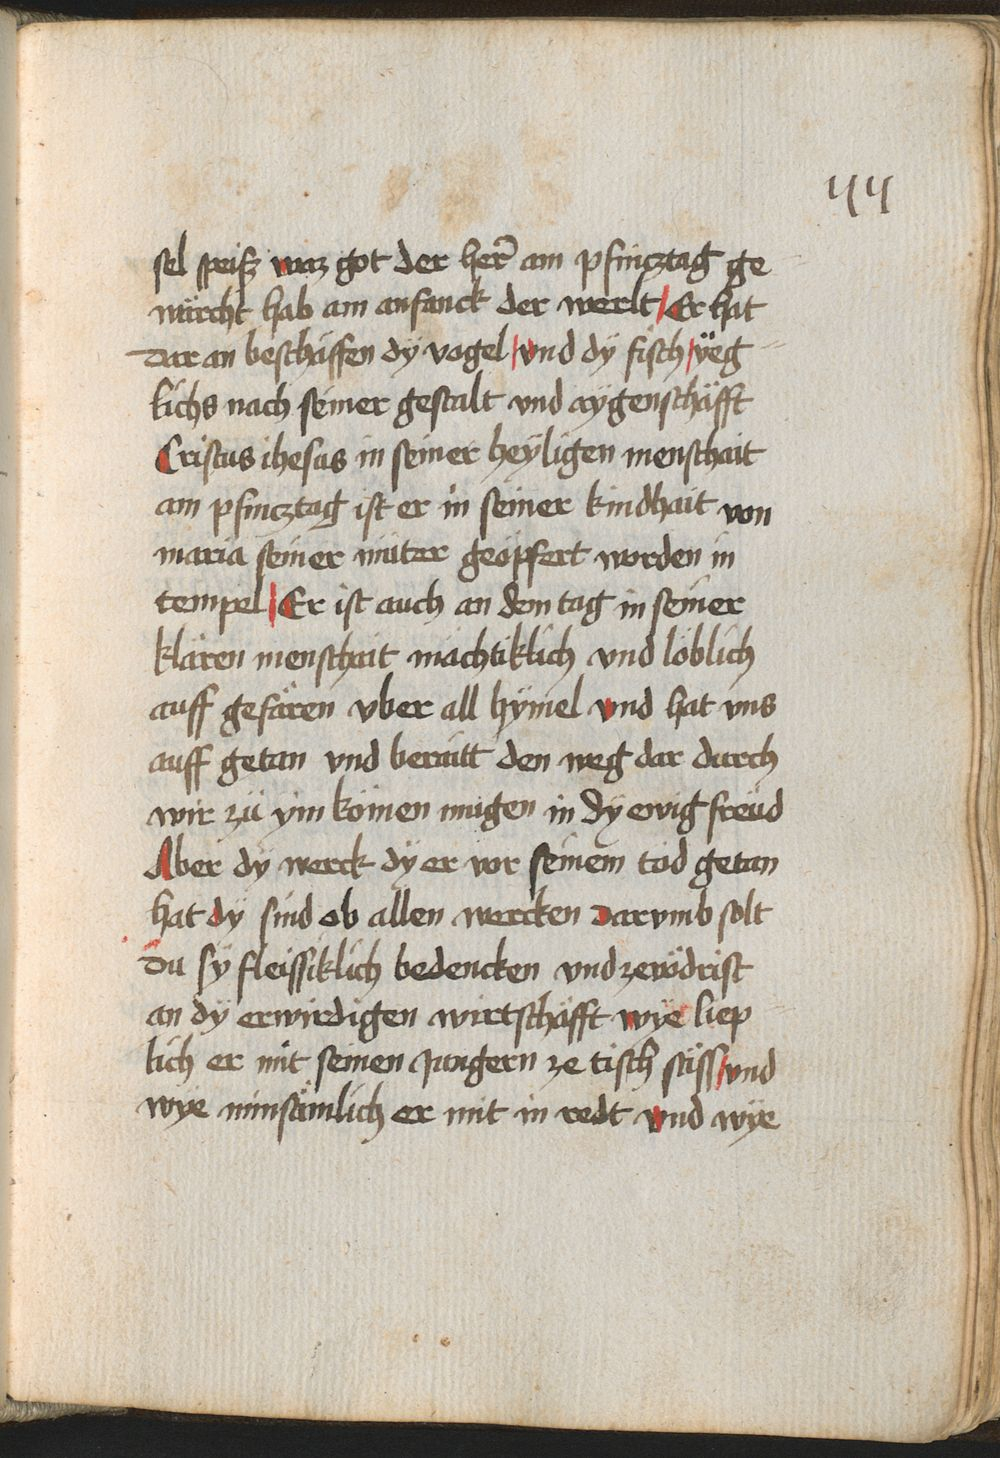 44
sel speisz waz got der her̃ am pfincztag ge
würcht hab am anfanck der werlt / Er hat
Dar an beschäffen dÿ vogel / vnd dÿ fisch / ÿeg
lichs nach seiner gestalt vnd aÿgenschäfft
Cristus ihesus in seiner heÿligen menschait
am pfincztag ist er in seiner kindhait von
maria seiner müter geöpfert worden in
tempel / Er ist auch an dem tag in seiner
klären menschait mächtiklich vnd löblich
auff gefären vber all hÿmel vnd hat vns
auff getan vnd beraitt den weg dar durch
wir zü ÿm kömen mügen in dÿ ewig freüd
Aber dÿ werck dÿ er vor seinem tod getan
hat dÿ sind ob allen wercken Darvmb solt
Du sÿ fleissiklich bedencken vnd zevödrist
an dÿ erwirdigen wirtschäfft wÿe liep
lich er mit seinen Jungern ze tisch säss / vnd
wÿe minsämlich er mit in redt vnd wÿe